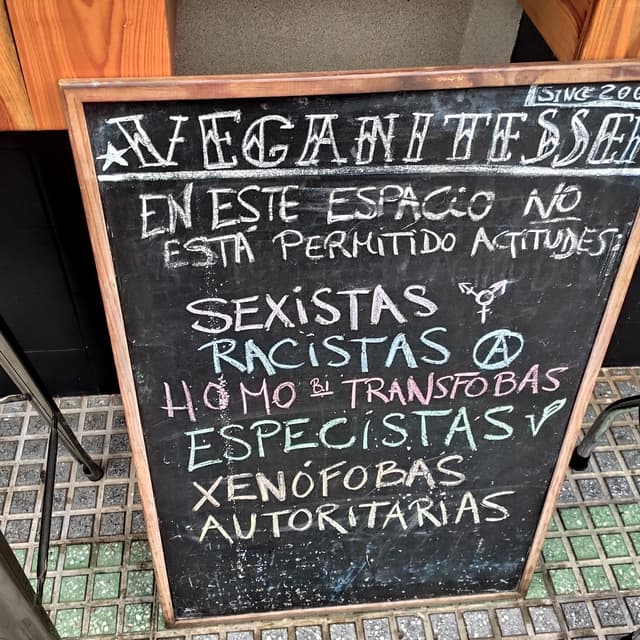 SINCE 200
VEGANITESSEN
EN ESTE ESPACIO NO
ESTÁ PERMITIDO ACTITUDES:
SEXISTAS
RACISTAS
HOMO BI TRANSFOBAS
ESPECISTAS
XENÓFOBAS
AUTORITARIAS